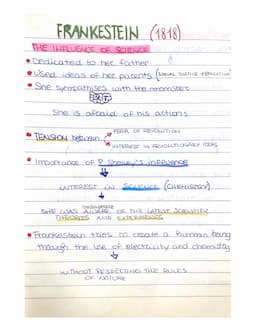 FRANKESTEIN (1818)
THE INFLUENCE OF SCIENCE
• Dedicated to her father
• Used ideas of her parents (SOCIAL JUSTICE + EDUCATION)
• She sympathises with the monster
BUT
She is afraid of his actions
• TENSION between → FEAR OF REVOLUTION
→ INTEREST IN REVOLUTIONARY IDEAS
• Importance of P. Shelley's influence
INTEREST IN SCIENCE (CHEMISTRY)
SHE WAS AWARE OF THE LATEST SCIENTIFIC
THEORIES AND EXPERIENCES
• Frankestein tries to create a human being
through the use of electricity and chemistry
WITHOUT RESPECTING THE RULES
OF NATURE